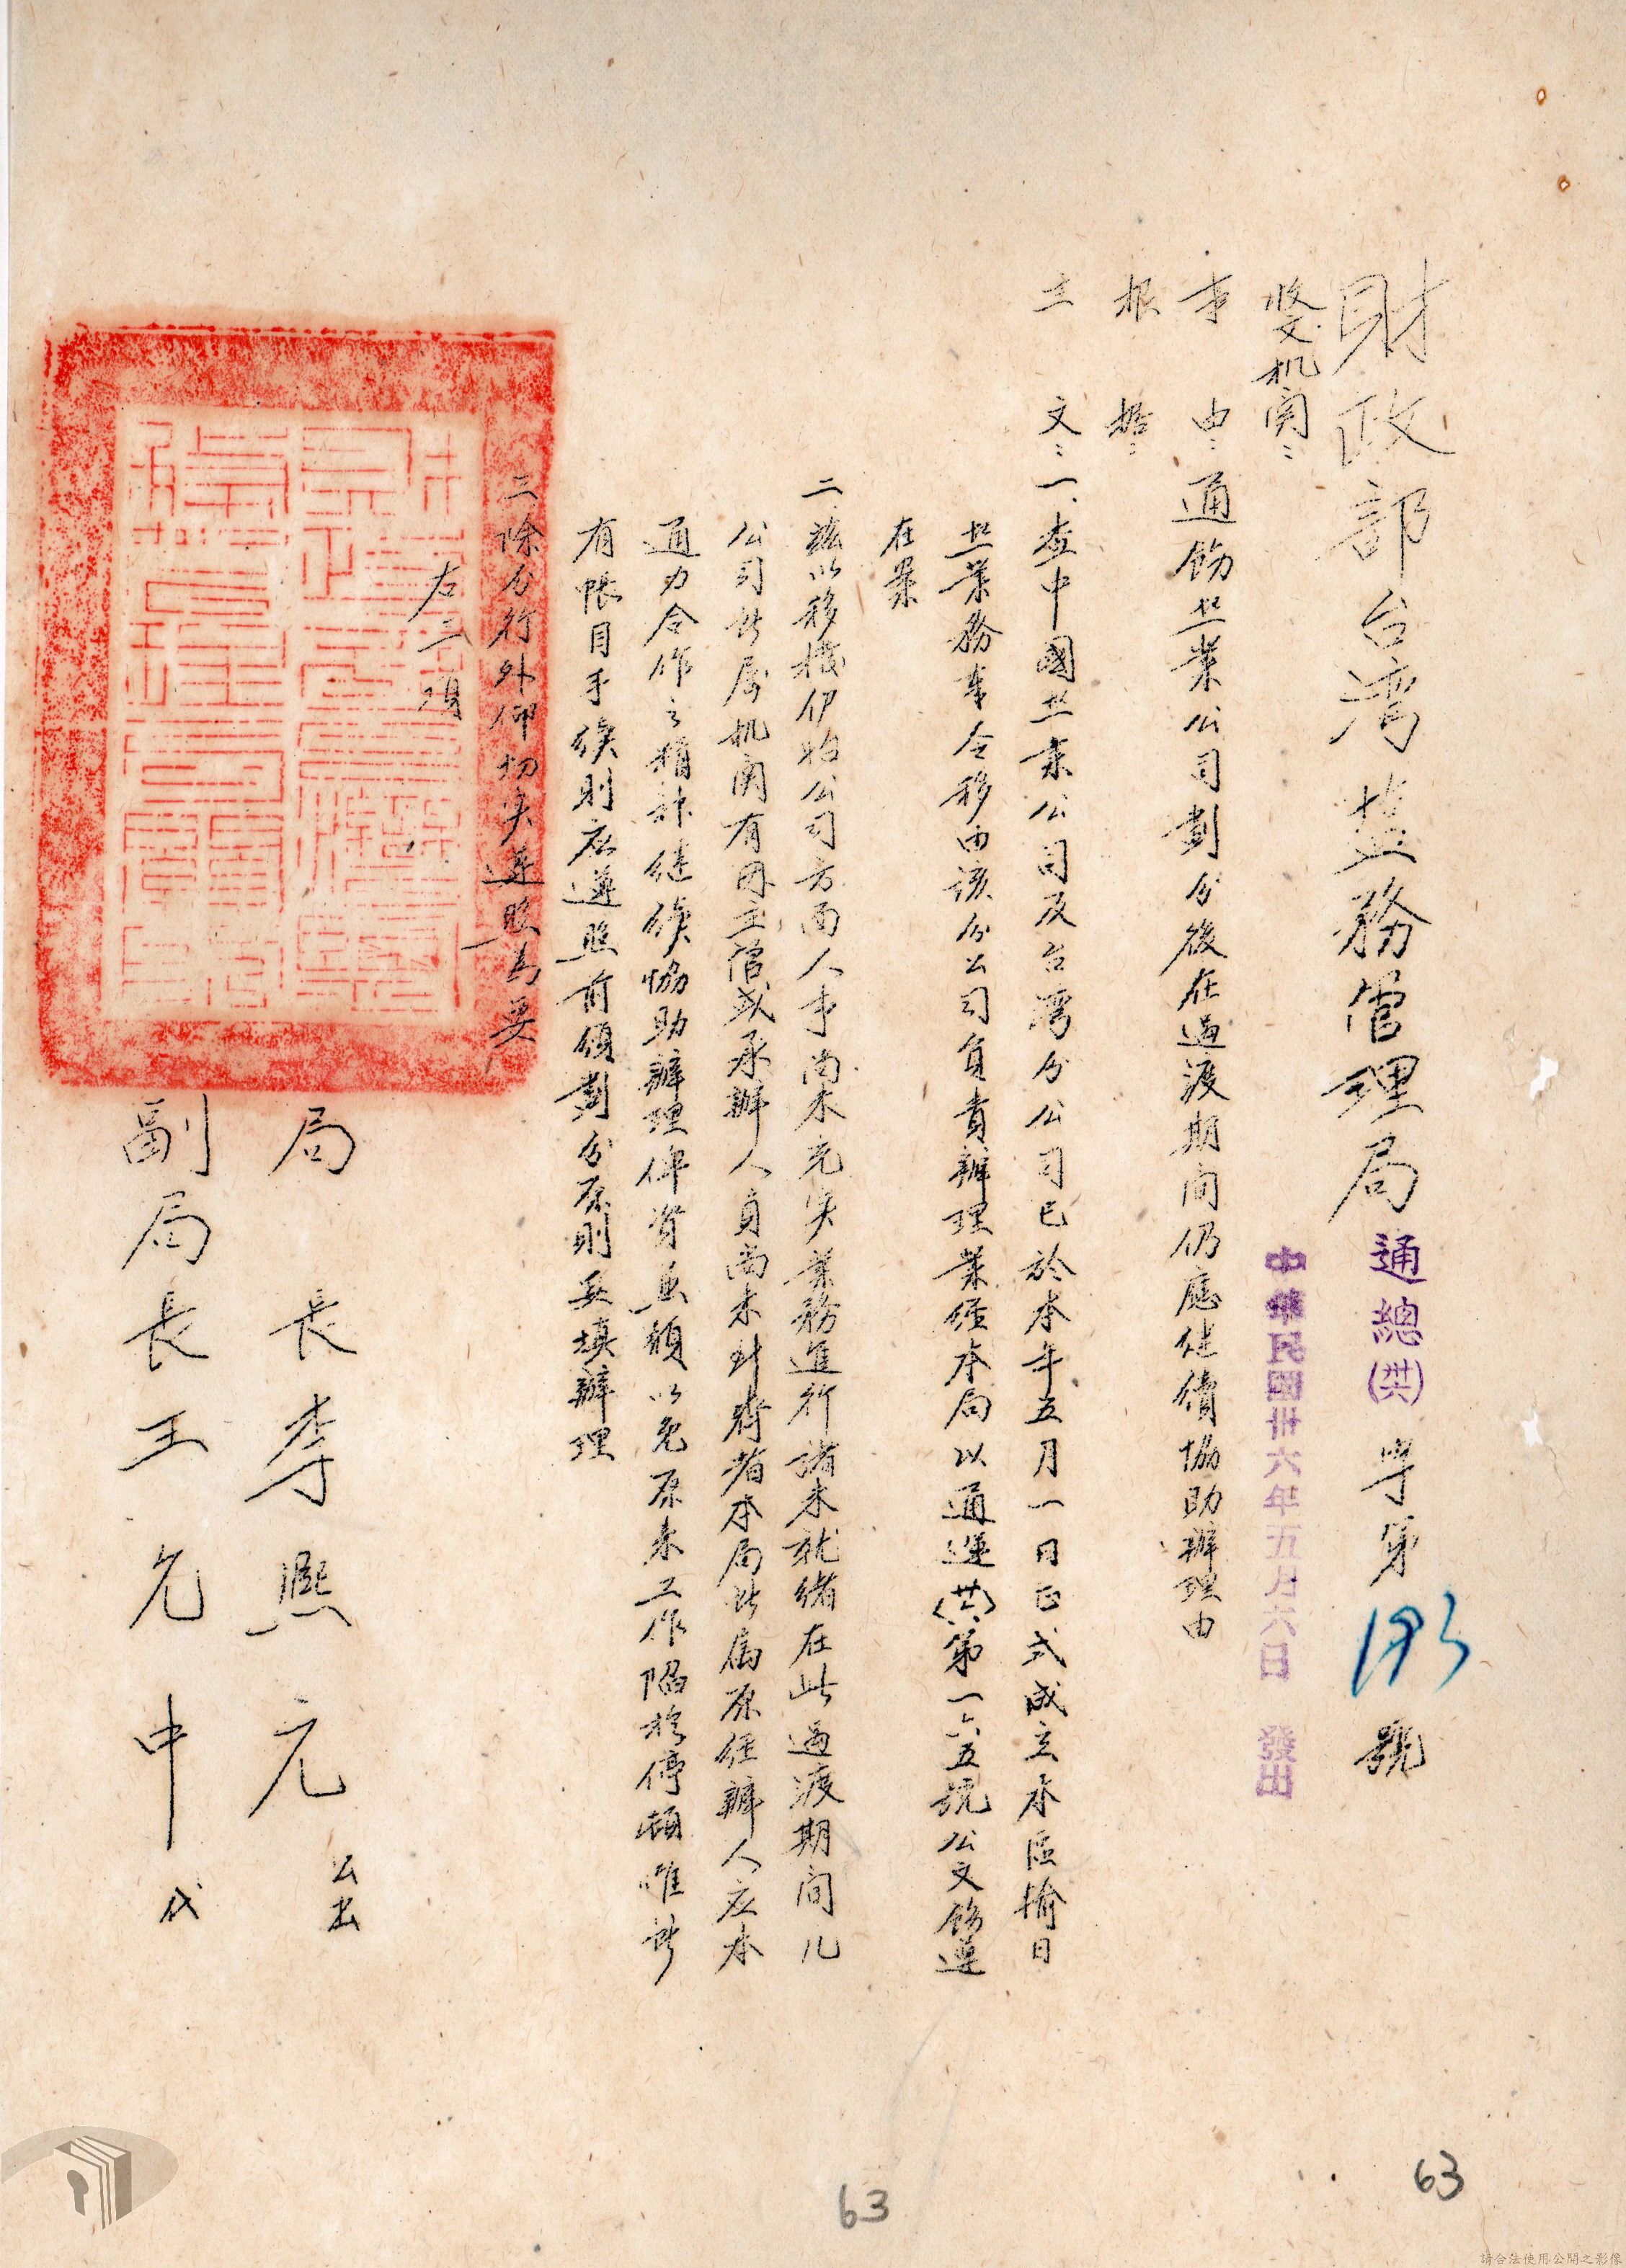 財政部台湾盐務管理局通總(卅六)字第193號
中華民國卅六年五月六日 發出
收文机関：
事由：通飭盐業公司劃分後在過渡期间仍應继續協助辦理由
根据：
主文：一、查中國盐業公司及台湾分公司已於本年五月一日正式成立本區揄日
盐業務車全移由该分公司負責辦理業經本局以通運(卅六)第一六五號公文飭遵
在案
二茲以移撥伊始公司方面人事尚未充実業務進行諸未就绪在此過渡期间凡
公司所属机関有因主管或承辦人員尚未到齊者本局所属原任辦人应本
通力合作之精神继续協助辦理俾資兼顧以免原来工作陷於停頓唯所
有帐目手续則应遵照前頒劃分原則妥填辦理
三除分行外仰切実遵照為要
右三項
局長李熙元 公出
副局長王允中 代
63
63
請合法使用公開之影像